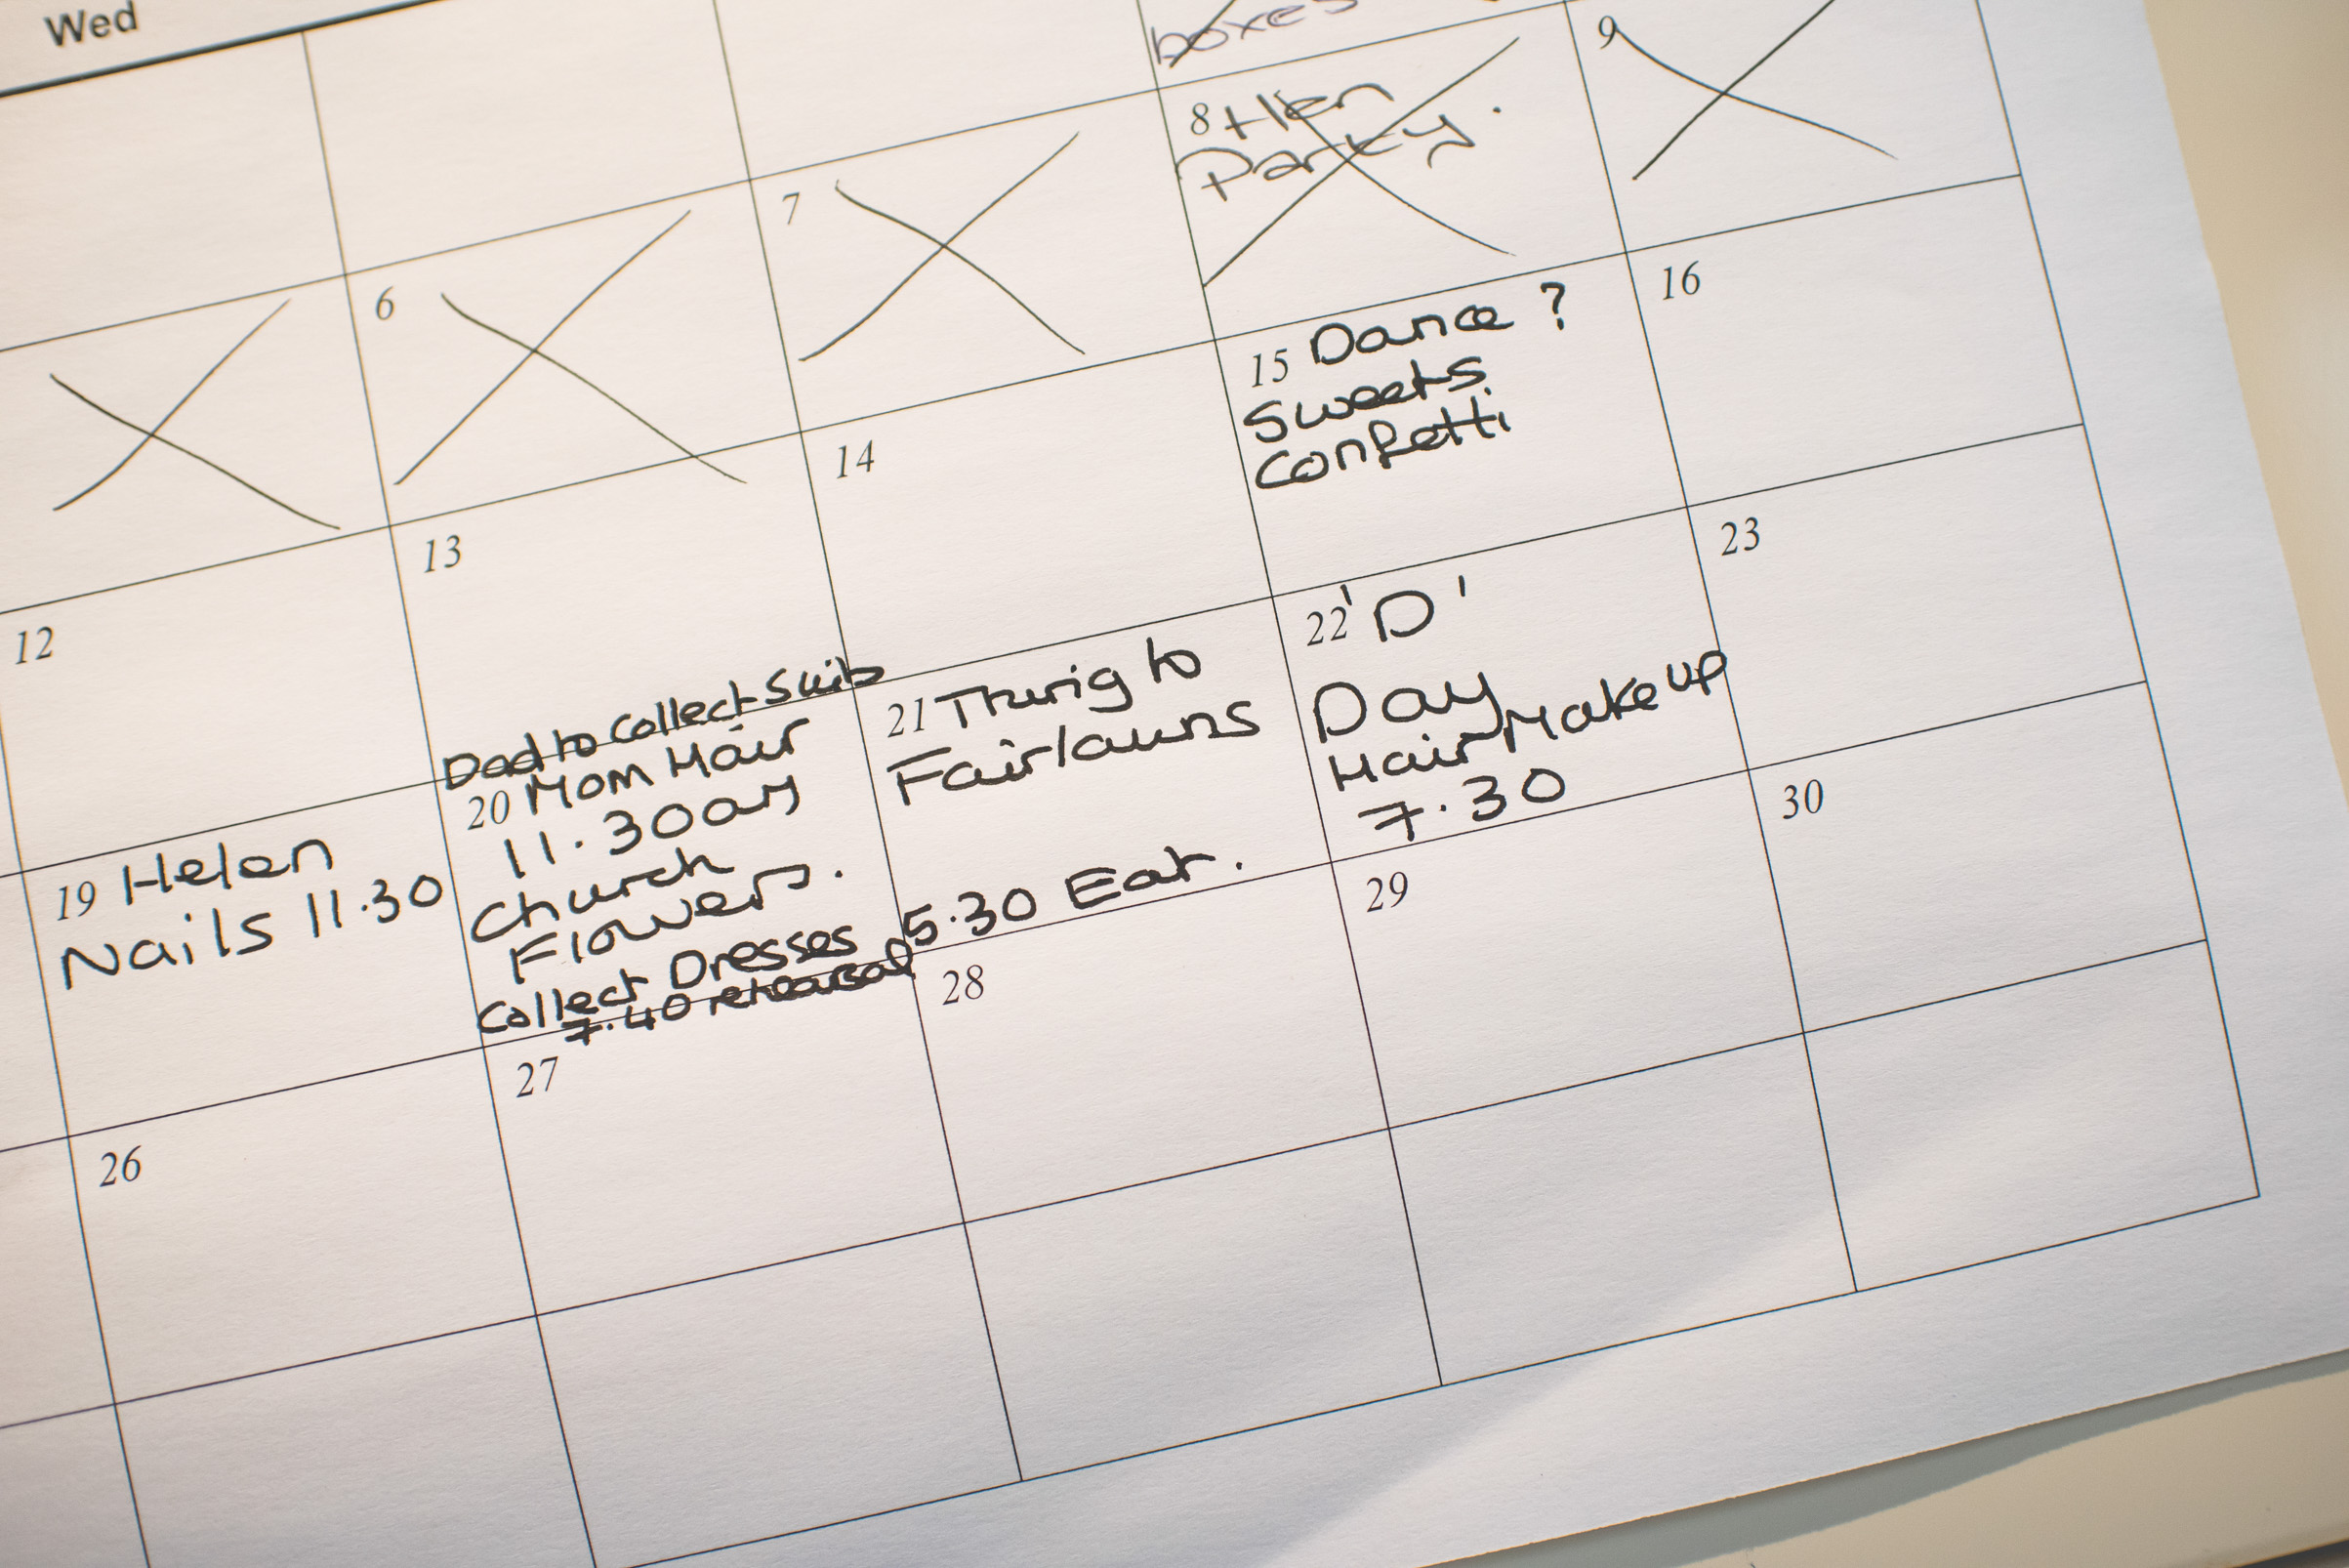 Wed
boxes
6
7
8 Hen
Party.
9
12
13
14
15 Dance ?
Sweets
Confetti
16
19 Helen
Nails 11.30
Dad to Collect Suits
20 Mom Hair
11.30am
Church
Flowers.
Collect Dresses
7.40 rehearsal
21 Things to
Fairlawns
5.30 Eat.
22 'D'
Day
Hair Makeup
7.30
23
26
27
28
29
30